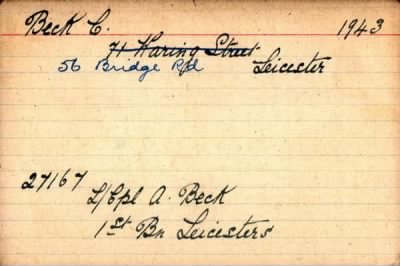 Beck C. 1943
71 Haring Street
56 Bridge Rd Leicester
27167
L/Cpl A. Beck
1st Bn Leicesters